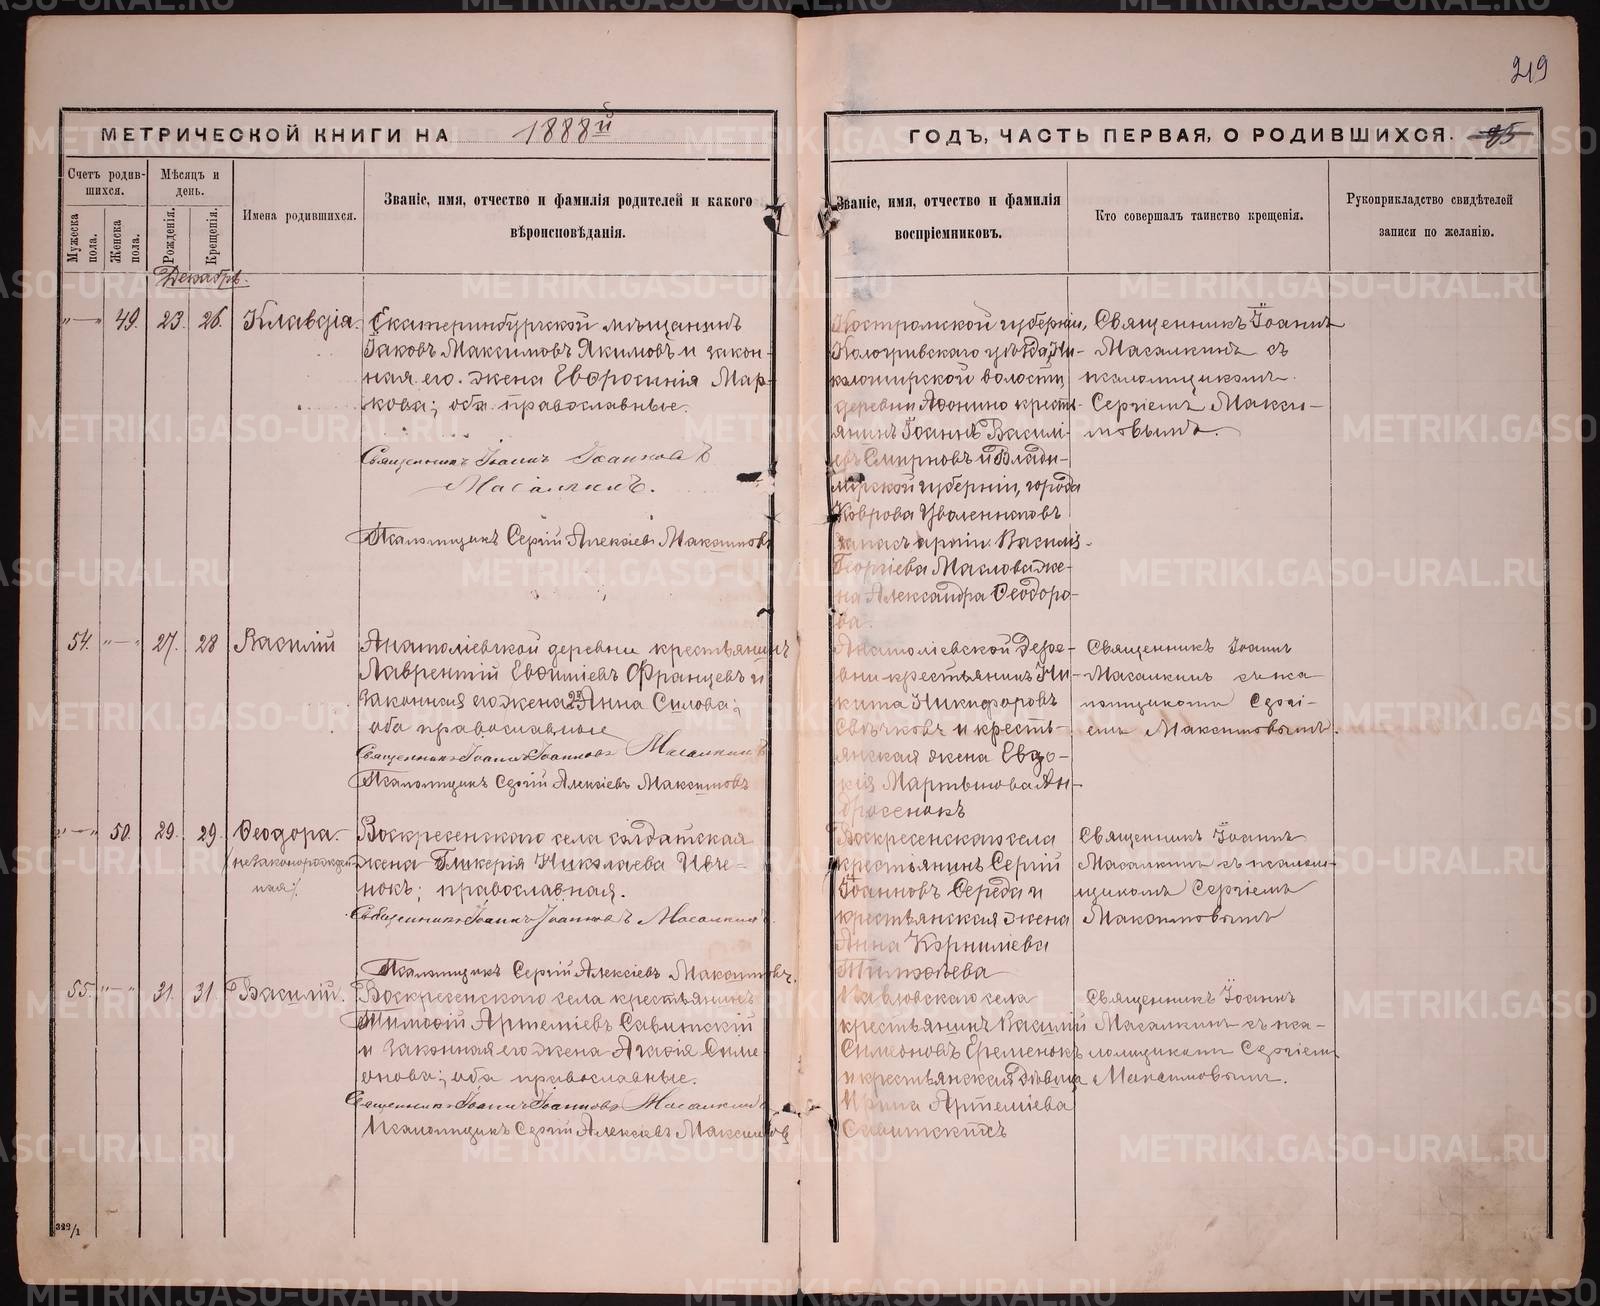 219
МЕТРИЧЕСКОЙ КНИГИ НА 1888й
ГОДЪ, ЧАСТЬ ПЕРВАЯ, О РОДИВШИХСЯ. 85
Счетъ родив-
шихся.
Мужеска
пола.
Женска
пола.
Мѣсяцъ и
день.
Рожденія.
Крещенія.
Имена родившихся.
Званіе, имя, отчество и фамилія родителей и какого
вѣроисповѣданія.
Званіе, имя, отчество и фамилія
воспріемниковъ.
Кто совершалъ таинство крещенія.
Рукоприкладство свидѣтелей
записи по желанію.
Декабрь.
"—" 49. 23. 26. Клавдія.
Екатеринбургской мѣщанинъ
Іаковъ Максимовъ Якимовъ и закон-
ная его жена Евфросинія Мар-
кова; оба православные.
Священникъ Іоаннъ Іоанновъ
Масалкинъ.
Псаломщикъ Сергій Алексіевъ Максимовъ
Костромской губерніи,
Кологривскаго уѣзда,
волости,
деревни Афонино кресть-
янинъ Іоаннъ Василі-
евъ Смирновъ и Влади-
мірской губерніи, города
Коврова
запасъ арміи Василія
Георгіева Маслова же-
на Александра Ѳеодоро-
ва.
Священникъ Іоаннъ
Масалкинъ съ
псаломщикомъ
Сергіемъ Макси-
мовымъ.
54. "—" 27. 28 Василій
Анатоліевской деревни крестьянинъ
Лаврентій Евѳиміевъ Францевъ и
законная его жена Анна Силова;
оба православные
Священникъ Іоаннъ Іоанновъ Масалкинъ
Псаломщикъ Сергій Алексіевъ Максимовъ
Анатоліевской дере-
вни крестьянинъ Ни-
кита Никифоровъ
Свѣчковъ и кресть-
янская жена Евдо-
кія Мартынова Ан-
дросенокъ
Священникъ Іоаннъ
Масалкинъ съ пса
ломщикомъ Сергі-
емъ Максимовымъ.
"—" 50. 29. 29. Ѳеодора.
(незаконорожден-
ная).
Воскресенскаго села солдатская
жена Гликерія Николаева Ивче-
нокъ; православная.
Священникъ Іоаннъ Іоанновъ Масалкинъ
Псаломщикъ Сергій Алексіевъ Максимовъ.
Воскресенскаго села
крестьянинъ Сергій
Іоанновъ Середа и
крестьянская жена
Анна Корниліева
Тимофѣева
Священникъ Іоаннъ
Масалкинъ съ псалом-
щикомъ Сергіемъ
Максимовымъ
55. "—" 31. 31. Василій.
Воскресенскаго села крестьянинъ
Тимофій Артеміевъ Савитскій
и законная его жена Агафія Симе-
онова; оба православные.
Священникъ Іоаннъ Іоанновъ Масалкинъ
Псаломщикъ Сергій Алексіевъ Максимовъ
Павловскаго села
крестьянинъ Василій
Симеоновъ Еременокъ
и крестьянская дѣвица
Ирина Артеміева
Савитскисъ
Священникъ Іоаннъ
Масалкинъ съ пса-
ломщикомъ Сергіемъ
Максимовымъ.
329/1
METRIKI.GASO-URAL.RU